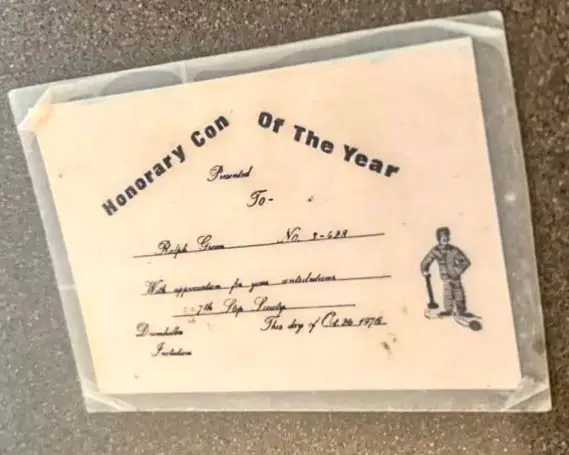 Honorary Con Of The Year
Presented
To-
Ralph Green No. 9-428
With appreciation for your contributions
7th Step Society
Drumheller This day of Oct 24 1976
Institution